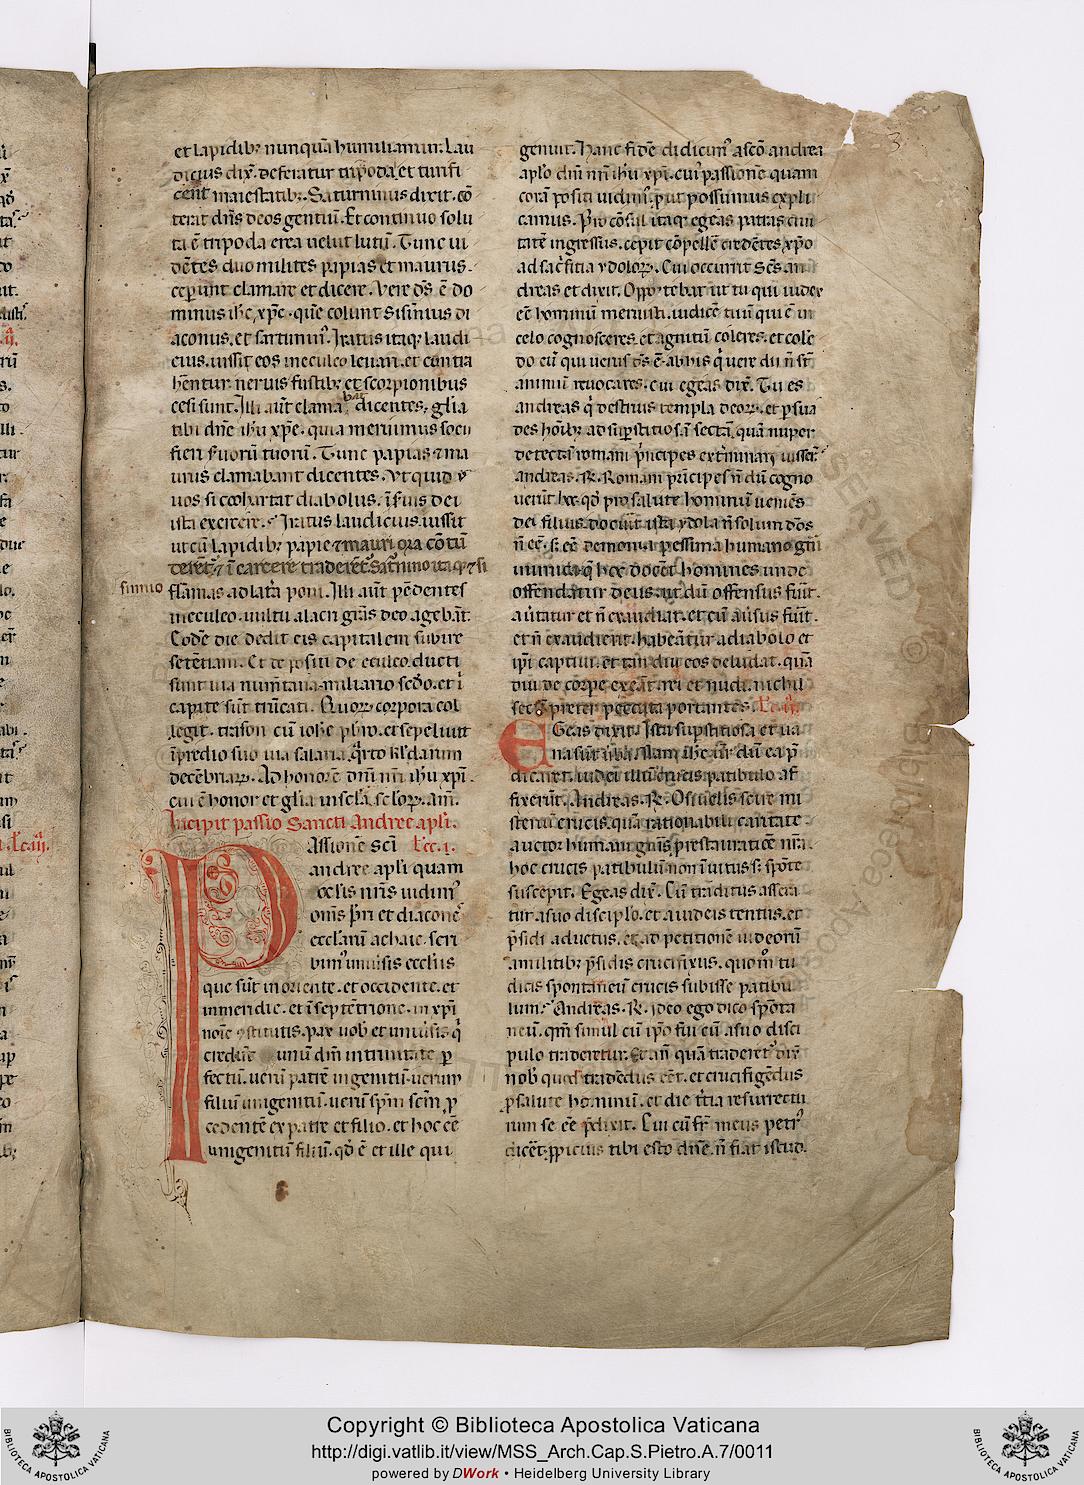 et lapidibꝫ nunquā humiliamur. Lau
dicius dix̄. deferatur tripoda et turifi
cent maiestatibꝫ. Saturninus dixit. cō
terat dn̄s deos gentiū. Et continuo solu
ta ē tripoda erea uelut lutū. Tunc ui
dētes duo milites papias et maurus.
ceperunt clamare et dicere. Vere ds̄ ē do
minus ih̄c xp̄c. quē colunt Sisinius di
aconus. et saturninꝰ. Iratus itaqꝫ laudi
cius. iussit eos ineculeo leuari. et contra
hentur neruis fustibꝫ et scorpionibus
cesi sunt. Illi aūt clamabāt dicentes. gl̄ia
tibi dn̄e ih̄u xp̄e. quia meruimus socii
fieri seruorū tuorū. Tunc papias ⁊ ma
urus clamabant dicentes. Vt quid ꝯͣ
uos sic cohartat diabolus. ī seruis dei
ista exercere. Iratus laudicius. iussit
ut cū lapidibꝫ papie ⁊ mauri ora cōtū
derēt̄. ⁊ ī carcere traderēt̄. Sat̄nino itaqꝫ ⁊ si
sinnio flāmas ad latera poni. Illi aūt pēdentes
ineculeo. uultu alacri gr̄as deo agebāt.
Eodē die dedit eis capitalem subire
setētiam. Et depositi de eculeo. ducti
sunt uia numētana. miliario sc̄do. et ī
capite sūt trūcati. Quorꝝ corpora col
legit. trason cū ioh̄e pb̄ro. et sepeliuit
ī predio suo uia salaria. q̄rto kl̄ darum
decēbriarꝝ. Ad honorē dn̄i nr̄i ih̄u xp̄i.
cui ē honor et gl̄ia in sc̄la sc̄lorꝝ. am̄.
Incipit passio Sancti Andree apl̄i.
PAssionē sc̄i Lēc. i.
andree apl̄i quam
ocl̄is nr̄is uidimꝰ
om̄s p̄ri et diaconeˢ
eccl̄arū achaie. scri
bimꝰ uniuˢis eccl̄iis
que sūt in oriente. et occidente. et
in meridie. et ī septētrione. in xp̄i
noīe ꝯstitutis. pax uob̄ et uniuˢis q̄
credūt unū dm̄ in trinitate ꝑ
fectū. uerū patrē ingenitū. uerum
filiū unigenitū. uerū sp̄m sc̄m ꝓ
cedentē ex patre et filio. et hoc eē
unigenitū filiū. qd̄ ē et ille qui
genuit. Hanc fidē didicimꝰ a sc̄o andrea
apl̄o dn̄i nr̄i ih̄u xp̄i. cui passionē quam
corā positi uidimꝰ. put possumus expli
camus. Pro cōsul itaqꝫ egeas patras ciui
tatē ingressus. cepit cōpellē credētes xp̄o
ad sac̄ficia ydolorꝝ. Cui occurrit sc̄s an
dreas et dixit. Oportebat ut tu qui iudex
eē hominū meruisti. iudicē tuū qui ē in
celo cognosceres. et agnitū coleres. et colē
do eū qui uerus ds̄ ē. ab his q̄ uere dii n̄ st̄
animū reuocares. cui egeas dix̄. Tu es
andreas q̄ destruis templa deorꝝ. et ꝑsua
des hoīibꝫ ad suꝑstitiosā sectā. quā nuper
detectā romani p̄ncipes exterminari iusserˀ.
Andreas. ℟. Romani p̄ncipes n̄ dū cogno
uerūt hoc. qd̄ pro salute hominū ueniēs
dei filius. docuit ista ydola n̄ solum dōs
n̄ eē. sꝫ eē demonia pessima humano gn̄i
inimica. q̄ hec docēt homines. unde
offendatur deus. aut dū offensus fūit.
auertatur et n̄ exaudiat. et cū auˢus fūit.
et n̄ exaudierit. habeātur a diabolo et
ip̄i captiui. et tamdiu eos deludat. quā
diu de corpe exeāt. rei et nudi. nichil
secū preter peccata portantes. Lēc. ii.
EGeas dixit. Ista supstitiosa et ua
na sūt uerba. Nam ih̄c ur̄ dū ea p̄
dicaret. iudei illū crucis patibulo af
fixerūt. Andreas. ℟. O si uelis scire mi
steriū crucis. quā rationabili caritate
auctor humani gn̄is. ꝓ restauratiōe nr̄a.
hoc crucis patibulū non īuitus sꝫ spōte
suscepit. Egeas dix̄. Cū traditus asseri
tur a suo discipl̄o. et a iudeis tentus. et
p̄sidi aductus. et ad petitionē iudeorū
a militibꝫ p̄sidis crucifixus. quom̊ tu
dicis spontaneū crucis subisse patibu
lum. Andreas. ℟. Ideo ego dico spōta
neū. qm̄ simul cū ip̄o fui cū a suo disci
pulo traderetur. Et an̄ quā traderet̄ dix̄
nob̄ quod tradēdus eēt. et crucifigēdus
ꝓ salute hominū. et die t̄tia resurrectu
rum se eē p̄dixit. Cui cū fr̄ meus petrꝰ
dicēt. ꝓpicius tibi esto dn̄e. n̄ fiat istud.
Copyright © Biblioteca Apostolica Vaticana
http://digi.vatlib.it/view/MSS_Arch.Cap.S.Pietro.A.7/0011
powered by DWork • Heidelberg University Library
BIBLIOTECA APOSTOLICA VATICANA
BIBLIOTECA APOSTOLICA VATICANA